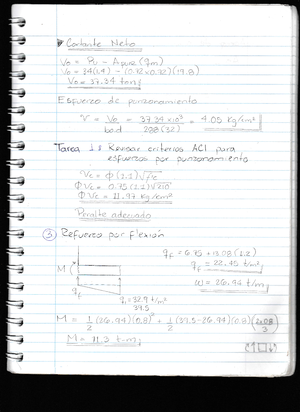 Cortante Neto
Vo = Pu - Apunz (qm)
Vo = 34(1.4) - (0.72×0.72)(19.8)
Vo = 37.34 ton
Esfuerzo de punzonamiento
V = Vo / bod = 37.34×10³ / 288(32) = 4.05 Kg/cm²
Tarea 1: Revisar criterios ACI para
esfuerzos por punzonamiento
Vc = φ(1.1)√f'c
φVc = 0.75(1.1)√210
φVc = 11.97 Kg/cm²
Peralte adecuado
3 Refuerzo por flexión
qf = 6.75 + 13.08(1.2)
qf = 22.45 t/m²
M
w = 26.94 t/m
qf
q1 = 32.9 t/m²
39.5
M = 1/2 (26.94)(0.8)² + 1/2 (39.5-26.94)(0.8)(2×0.8/3)
M = 11.3 t-m